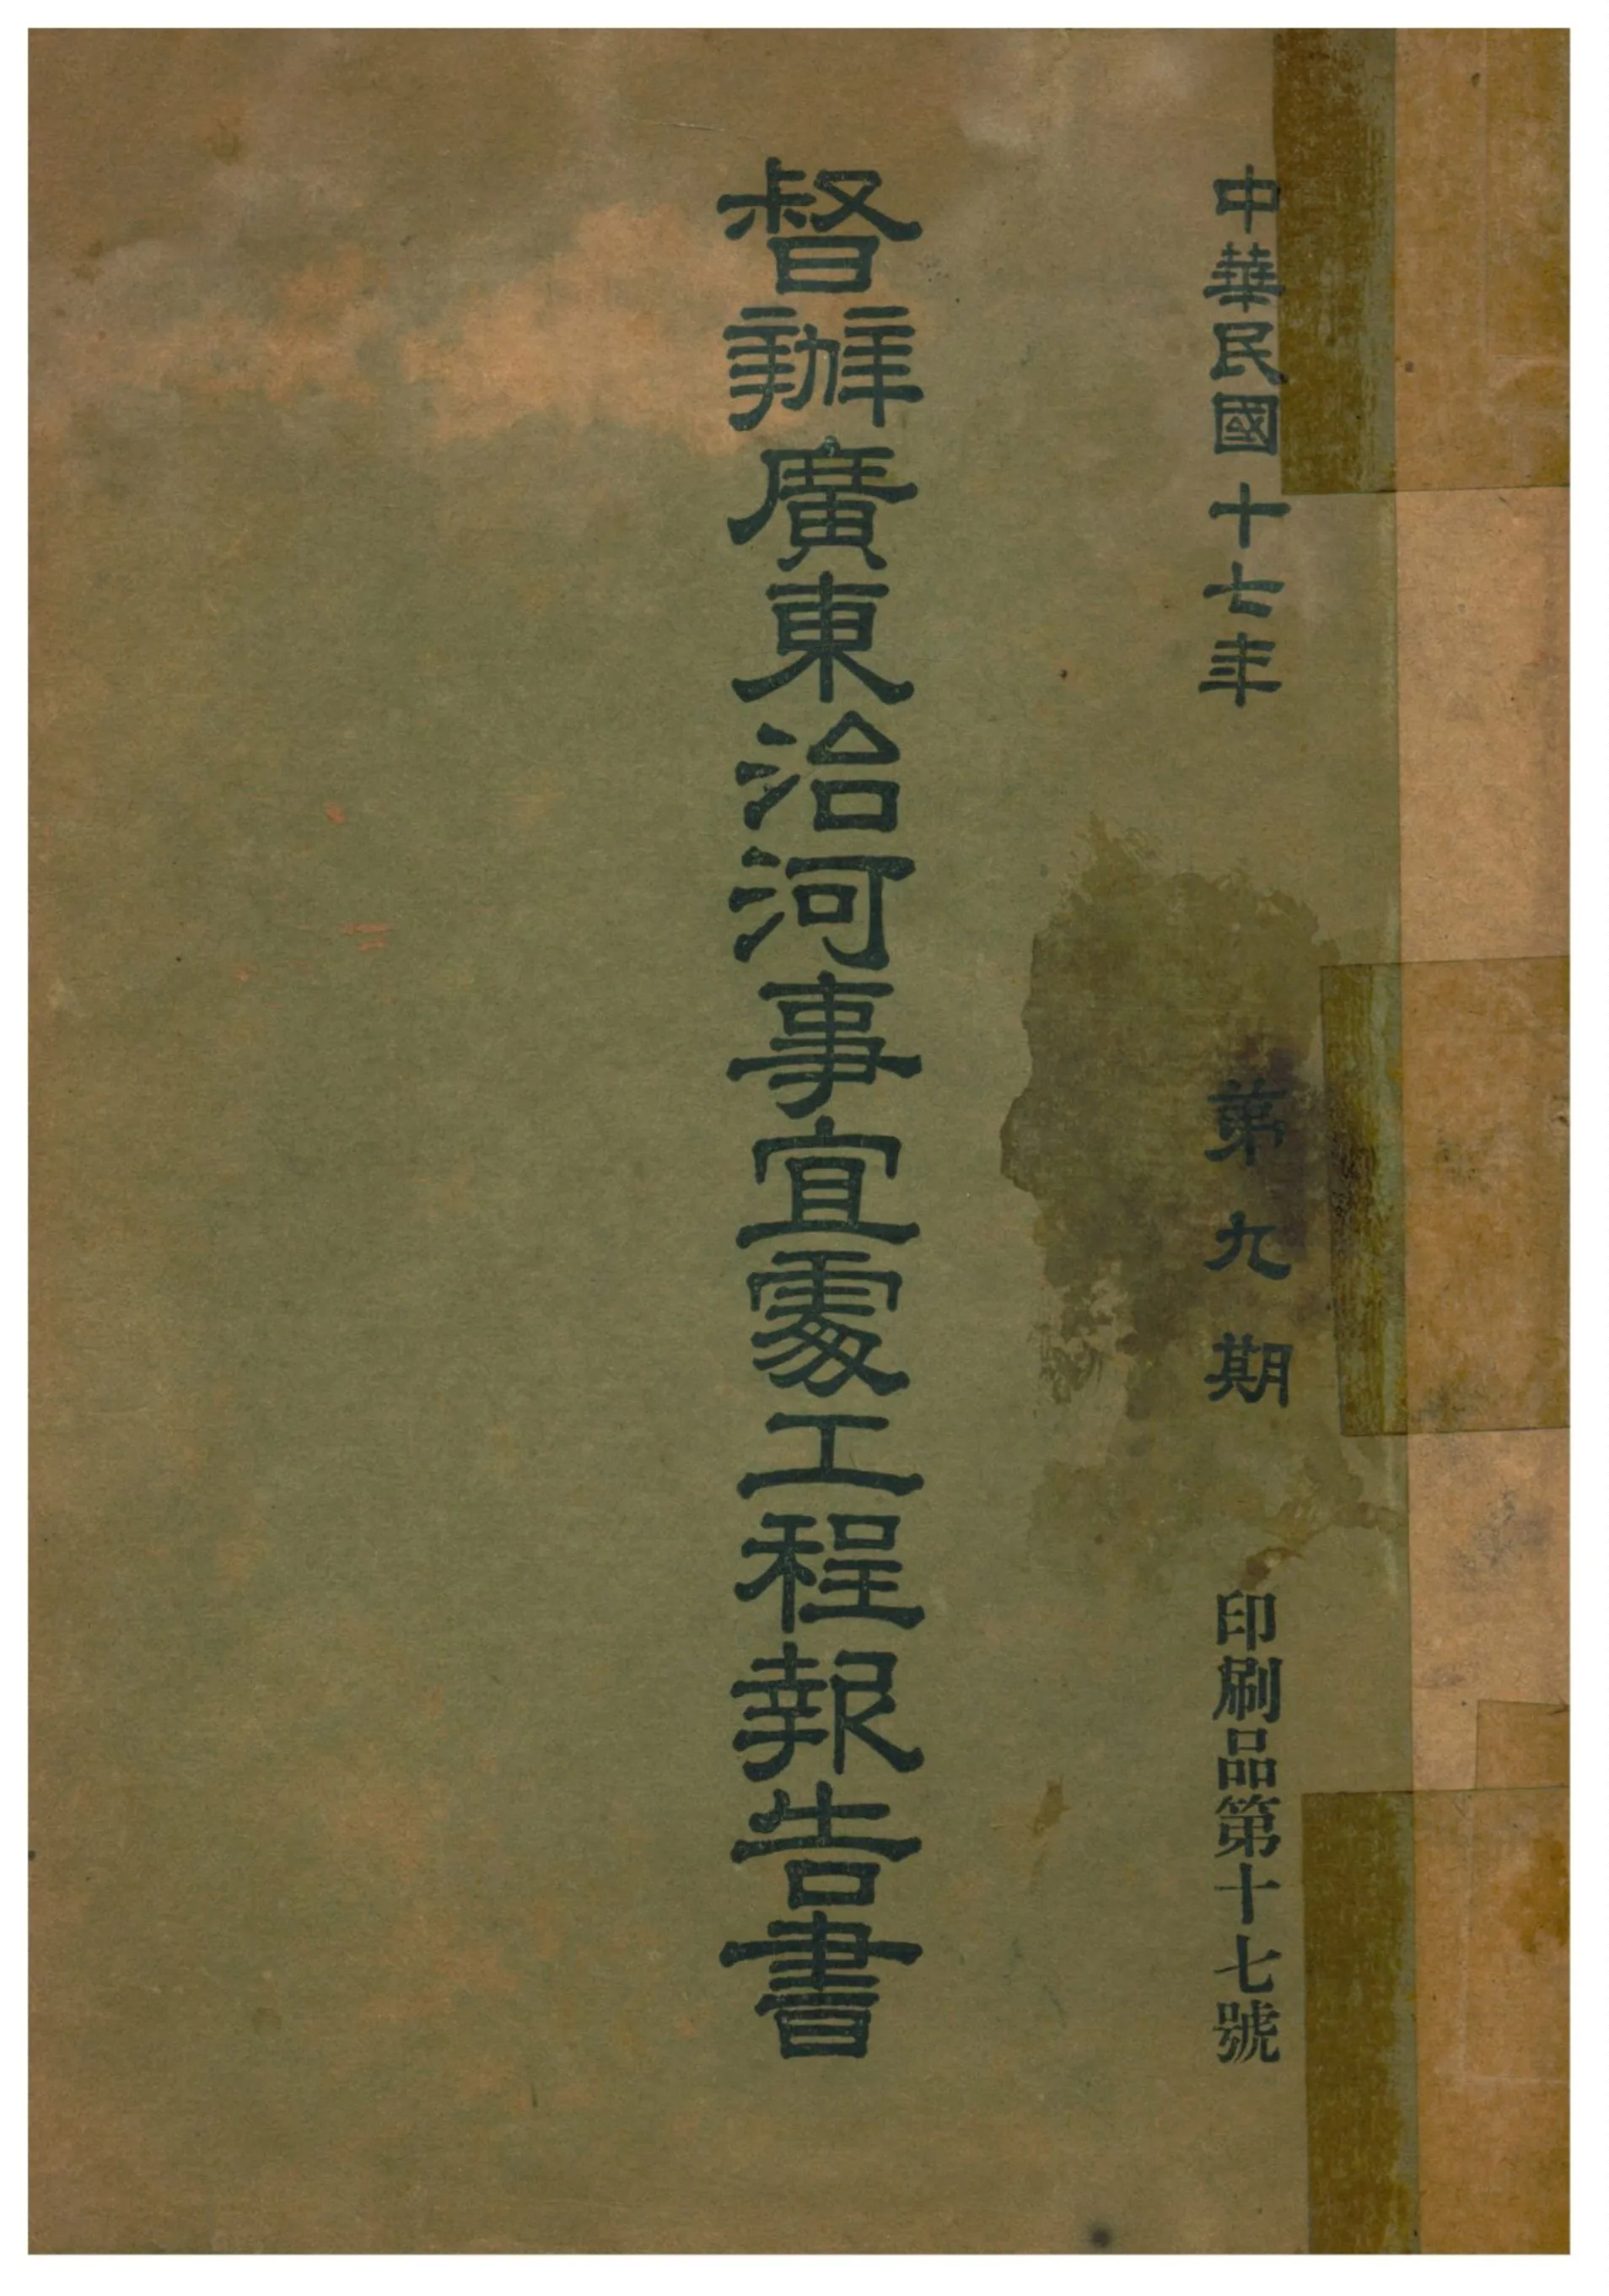 中華民國十七年 第九期 印刷品第十七號
督辦廣東治河事宜處工程報告書